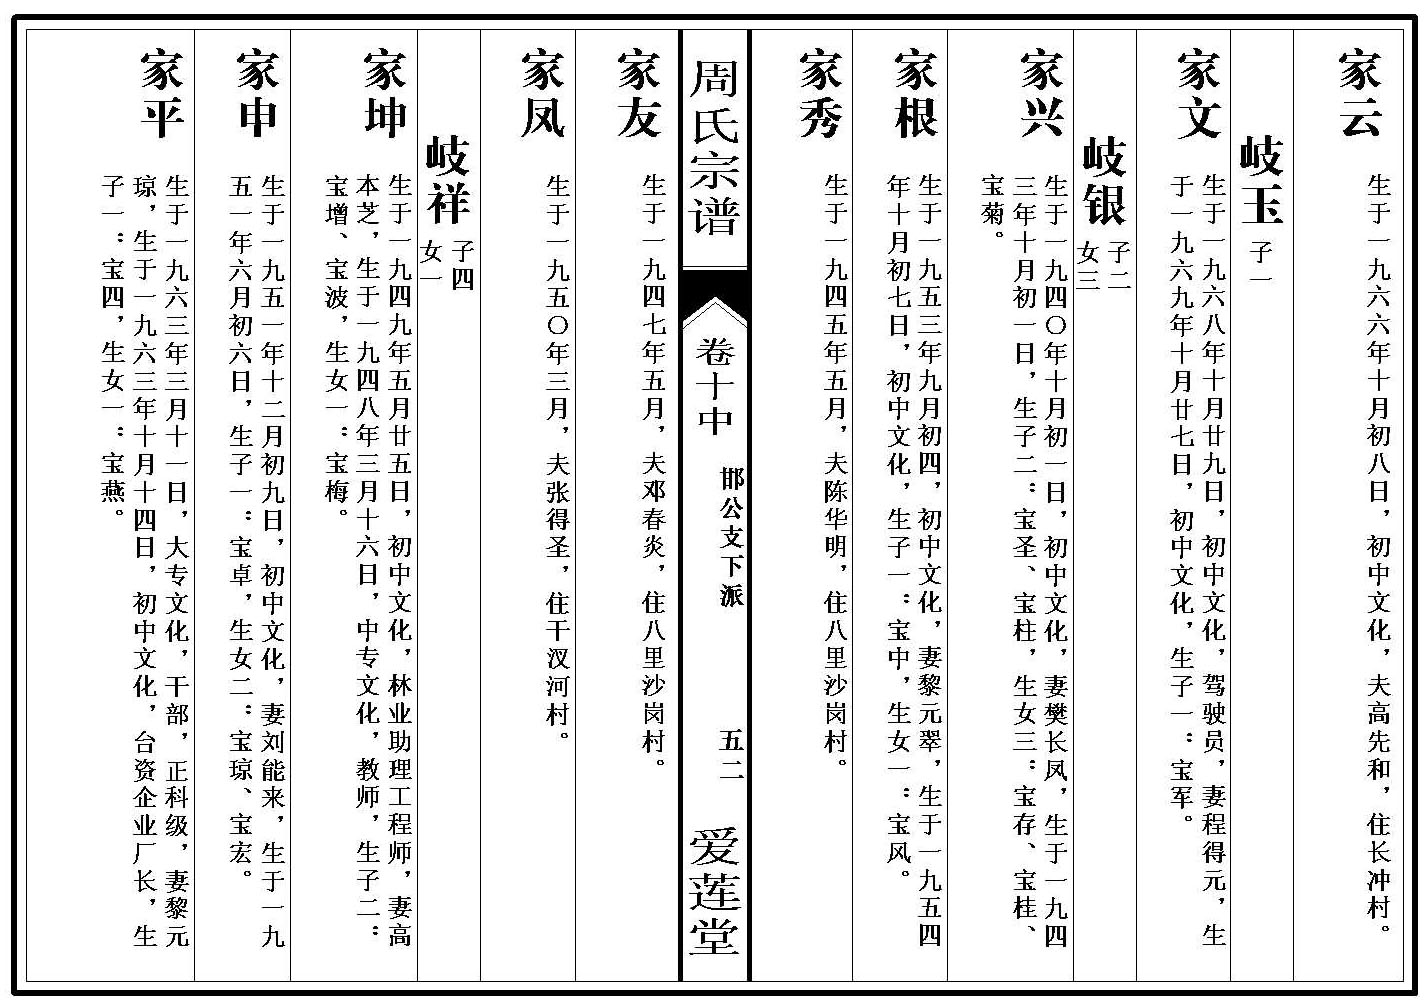 家云
生于一九六六年十月初八日，初中文化，夫高先和，住长冲村。
岐玉
子一
家文
生于一九六八年十月廿九日，初中文化，驾驶员，妻程得元，生
于一九六九年十月廿七日，初中文化，生子一：宝军。
岐银
子二
女三
家兴
生于一九四〇年十月初一日，初中文化，妻樊长凤，生于一九四
三年十月初一日，生子二：宝圣、宝柱，生女三：宝存、宝桂、
宝菊。
家根
生于一九五三年九月初四，初中文化，妻黎元翠，生于一九五四
年十月初七日，初中文化，生子一：宝中，生女一：宝风。
家秀
生于一九四五年五月，夫陈华明，住八里沙岗村。
周氏宗谱
卷十中
邯公支下派
五二
爱莲堂
家友
生于一九四七年五月，夫邓春炎，住八里沙岗村。
家凤
生于一九五〇年三月，夫张得圣，住干汊河村。
岐祥
子四
女一
家坤
生于一九四九年五月廿五日，初中文化，林业助理工程师，妻高
本芝，生于一九四八年三月十六日，中专文化，教师，生子二：
宝增、宝波，生女一：宝梅。
家申
生于一九五一年十二月初九日，初中文化，妻刘能来，生于一九
五一年六月初六日，生子一：宝卓，生女二：宝琼、宝宏。
家平
生于一九六三年三月十一日，大专文化，干部，正科级，妻黎元
琼，生于一九六三年十月十四日，初中文化，台资企业厂长，生
子一：宝四，生女一：宝燕。